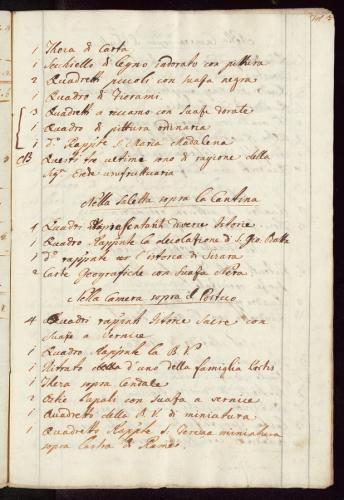 1 Thera di Carta
1 Secchiello di legno indorato con pittura
2 Quadretti piccoli con suasa negra
1 Quadro di Fiorami
3 Quadretti a reccamo con Suase dorate
1 Quadro di pittura ordinaria
1 d.o Rappnte S. Maria Madalena
NB Questi tre ultimi sono di ragione della
Sig.ra Erede usufruttuaria
Nella Saletta sopra la Cantina
4 Quadri Rapresentanti diverse Istorie
1 Quadro Rappnte la decolatione di S. Gio. Batta
1 d.o rappnte l'istoria di Sisara
2 Carte Geografiche con Suasa Nera
Nella Camera sopra il Portico
4 Quadri rappnti Istorie Sacre con
Suase a Vernice
1 Quadro Rappnte la B. V.
1 Ritrato d'uno della famiglia
1 Thera sopra Cendale
2 Papali con suasa a vernice
1 Quadretto della B. V. di miniatura
1 Quadretto Rappnte S. Teresa miniatura
sopra Lastra di Rame